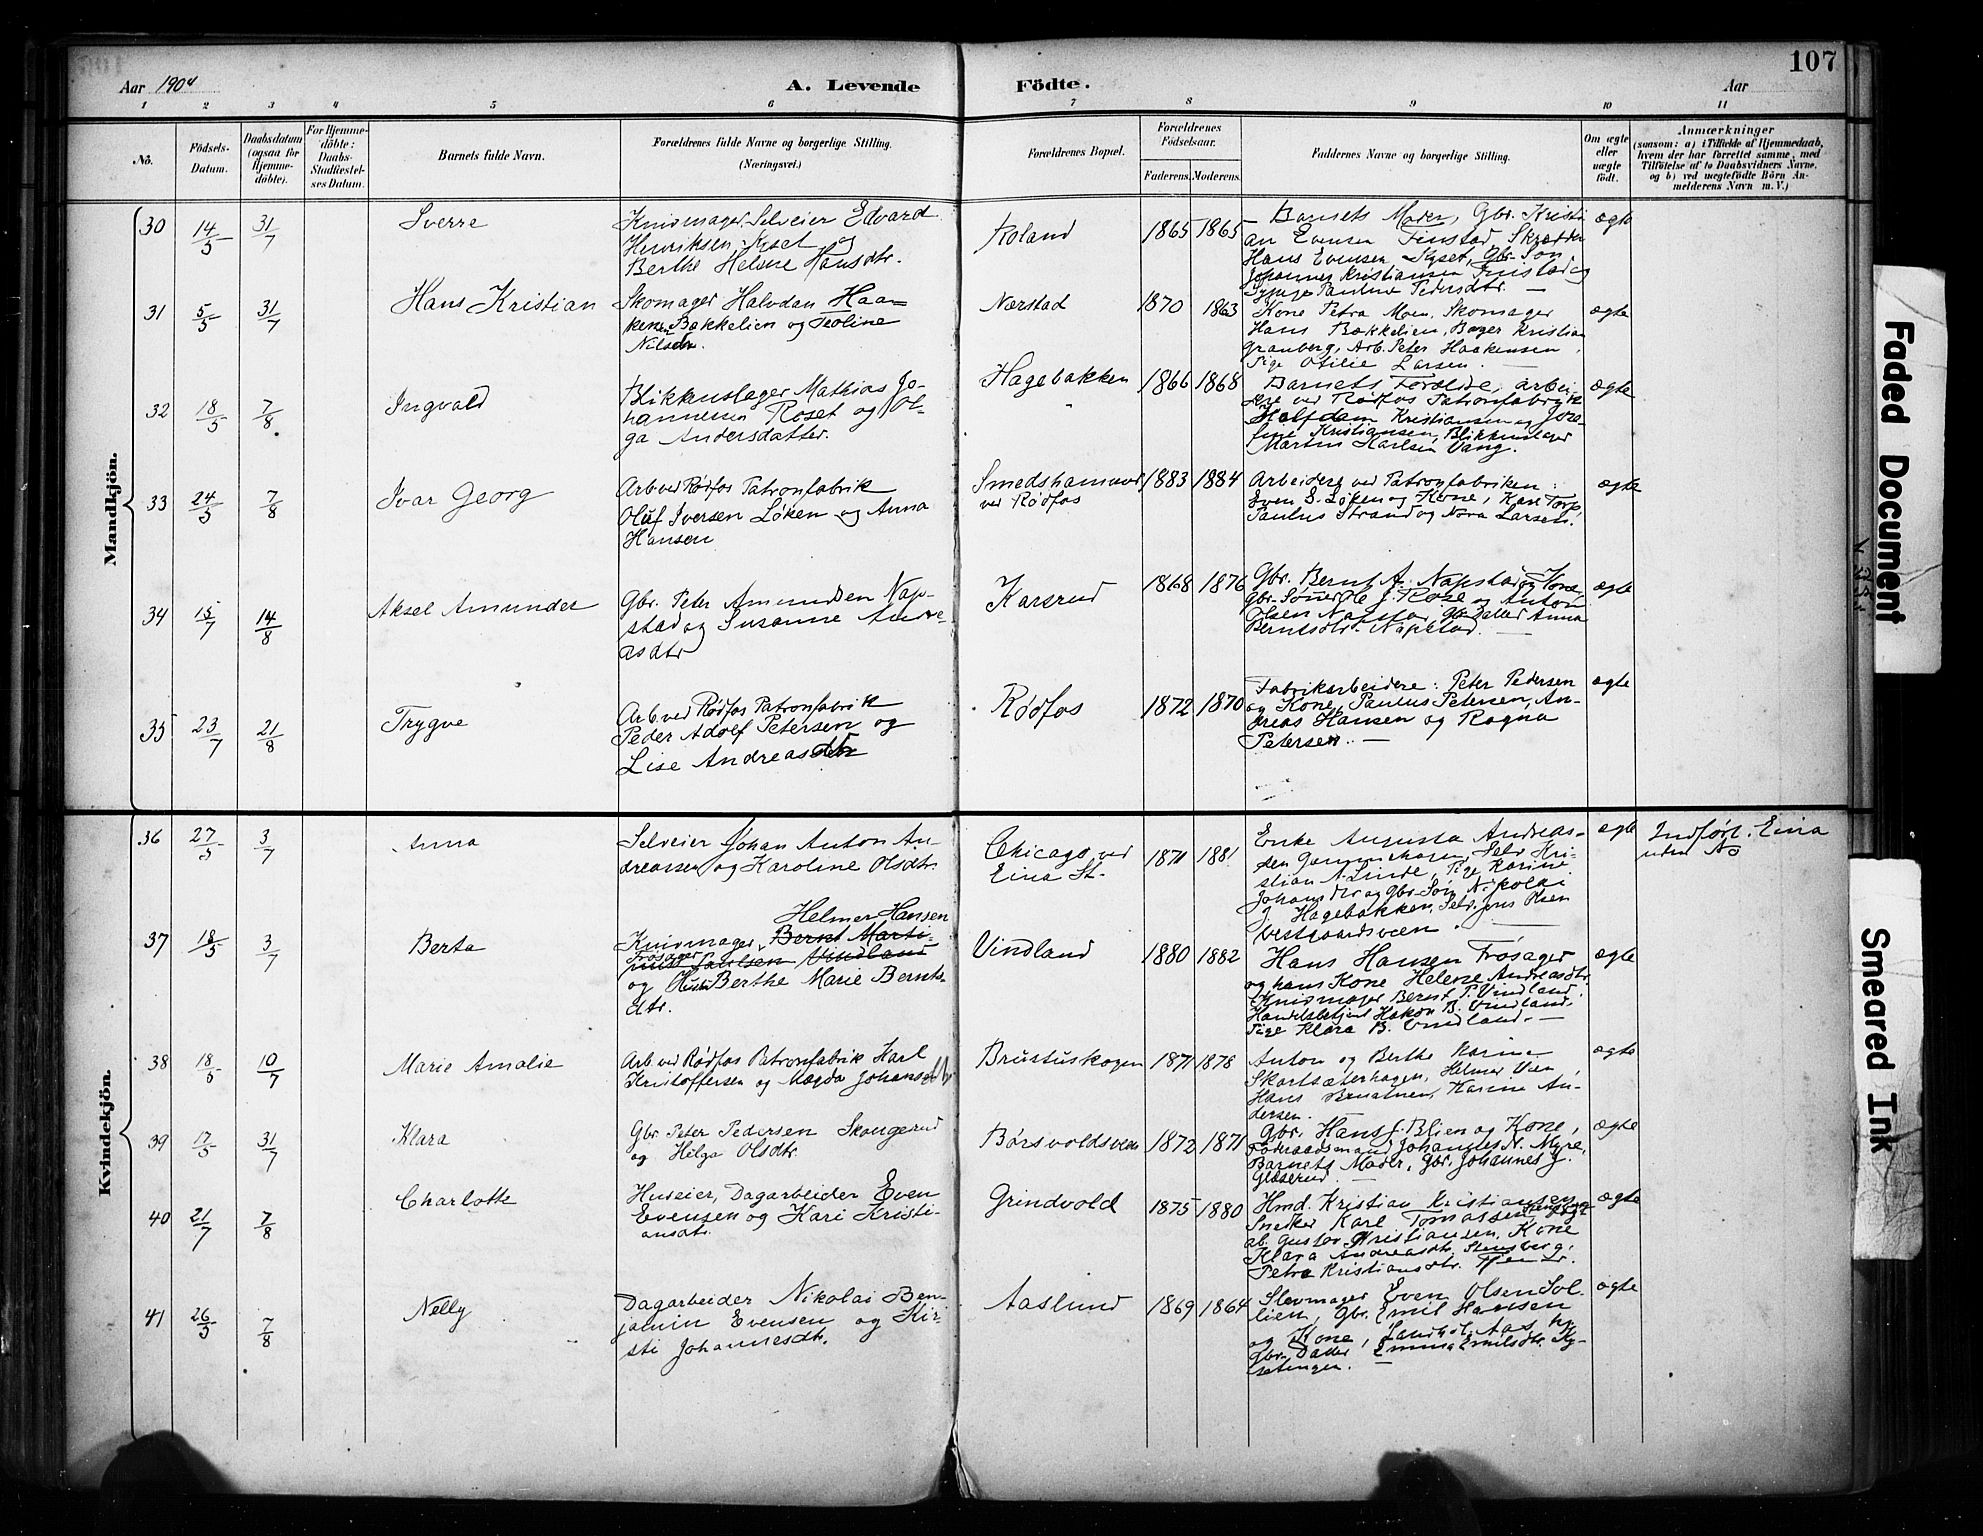 107
Aar 1904
A. Levende Födte.
Aar
1 2 3 4 5 6 7 8 9 10 11
No.
Födsels-Datum.
Daabsdatum (ogsaa for Hjemmedöbte).
For Hjemmedöbte: Daabs-Stadfæstelses Datum.
Barnets fulde Navn.
Forældrenes fulde Navne og borgerlige Stilling. (Næringsvei.)
Forældrenes Bopæl.
Forældrenes Födselsaar.
Faderens. Moderens.
Faddernes Navne og borgerlige Stilling.
Om ægte eller uægte födt.
Anmærkninger
(saasom: a) i Tilfælde af Hjemmedaab, hvem der har forrettet samme, med Tilföielse af to Daabsvidners Navne, og b) ved uægtefödte Börn Anmelderens Navn m. V.)
Mandkjön.
30 14/5 31/7 Sverre
Knivmager, Selveier Edvard
Henriksen Kyset og
Berthe Helene Hansdtr.
Roland 1865 1865
Barnets Moder, Gbr. Kristi
an Evensen Finstad, Skrædder
Hans Evensen Kyset, Gbr. Søn
Johannes Kristiansen Finstad og
Pige Pauline Pedersdtr.
ægte
31 5/5 31/7 Hans Kristian
Skomager Halvdan Haa-
kensen Bakkelien og Teoline
Nilsen.
Nærstad 1870 1863
Kone Petra Moen, Skomager
Hans Bakkelien, Bager Kristian
Granberg, Arb. Peter Haakensen,
Pige Otilie Larsen.
ægte
32 18/5 7/8 Ingvald
Blikkenslager Mathias Jo-
hannesen Roset og Ol-
ga Andersdatter.
Hagebakken 1866 1868
Barnets Forældre, arbei-
dere ved Rødfos Patronfabrik
Halfdan Kristiansen og Jose-
fine Kristiansen, Blikkenslager
Martin Karlsen Vang.
ægte
33 24/5 7/8 Ivar Georg
Arb. ved Rødfos Patronfabrik
Oluf Iversen Løken og Anna
Hansen
Smedshammer
ved Rødfos
1883 1884
Arbeidere ved Patronfabriken:
Sven S. Løken og Kone, Karl Torp,
Paulus Strand og Nora Larsen.
ægte
34 15/7 14/8 Aksel Amunder
Gbr. Peter Amundsen Nap-
stad og Susanne Andre-
asdtr
Karsrud 1868 1876
Gbr. Bernt A. Napstad og Kone,
Gbr. Sønner Ole J. Rose og Anton
Olsen Napstad, Gbr. datter Anna
Berntsdtr. Napstad.
ægte
35 23/7 21/8 Trygve
Arb. ved Rødfos Patronfabrik
Peder Adolf Petersen og
Lise Andreasdtr
Rødfos 1872 1870
Fabrikarbeidere: Peter Pedersen
og Kone, Paulus Petersen, An-
dreas Hansen og Ragna
Petersen.
ægte
Kvindekjön.
36 27/5 3/7 Anna
Selveier Johan Anton An-
dreassen og Karoline Olsdtr.
Chicago ved
Eina St.
1871 1881
Enke Augusta Andreas-
den, Selv. Kri-
stian A. Linde, Pige Karine
Johansdtr og Gbr. Søn Nikolai
J. Hagebakken, Selv. Jens Olsen
Vestgaardsveen.
ægte
Indført. Eina
uden No
37 18/5 3/7 Berta
Helmer Hansen
Knivmager, Bernt Marti-
Frøsager
nus Paulsen Vindland
og Hustru Berthe Marie Bernts-
dtr.
Vindland 1880 1882
Hans Hansen Frøsager
og hans Kone Helene Andreasdtr.
Knivmager Bernt P. Vindland,
Handelsbetjent Hakon B. Vindland,
Pige Klara B. Vindland.
ægte
38 18/5 10/7 Marie Amalie
Arb. ved Rødfos Patronfabrik Karl
Kristoffersen og Magda Johansdtr
Brustuskogen 1871 1878
Anton og Berthe Karine
Skartsæterhagen, Helmer Vien
Hans Brustuen, Karine An-
dersen.
ægte
39 17/5 31/7 Klara
Gbr. Peter Pedersen Skongerud
og Helga Olsdtr.
Børsvoldsveen 1872 1871
Gbr. Hans J. Blien og Kone,
Føderaadsmand Johannes N. Myre,
Barnets Moder, Gbr. Johannes J.
Glæserud.
ægte
40 21/7 7/8 Charlotte
Huseier, Dagarbeider Even
Evensen og Kari Kristi-
ansdtr.
Grindvold 1875 1880
Hmd. Kristian Kristiansen
Snedker Karl Tomassen
ab. Gustav Kristiansen, Kone
Klara Andreasdtr. Stensberg,
Petra Kristiansdtr.
ægte
41 26/5 7/8 Nelly
Dagarbeider Nikolai Ben-
jamin Evensen og Kir-
sti Johannesdtr.
Aaslund 1869 1864
Slevmager Even Olsen Sol-
lien, Gbr. Emil Hansen
og Kone, Aas,
Gbr. Datter, Emma Emilsdtr. Ky-
setengen.
ægte
Faded Document
Smeared Ink